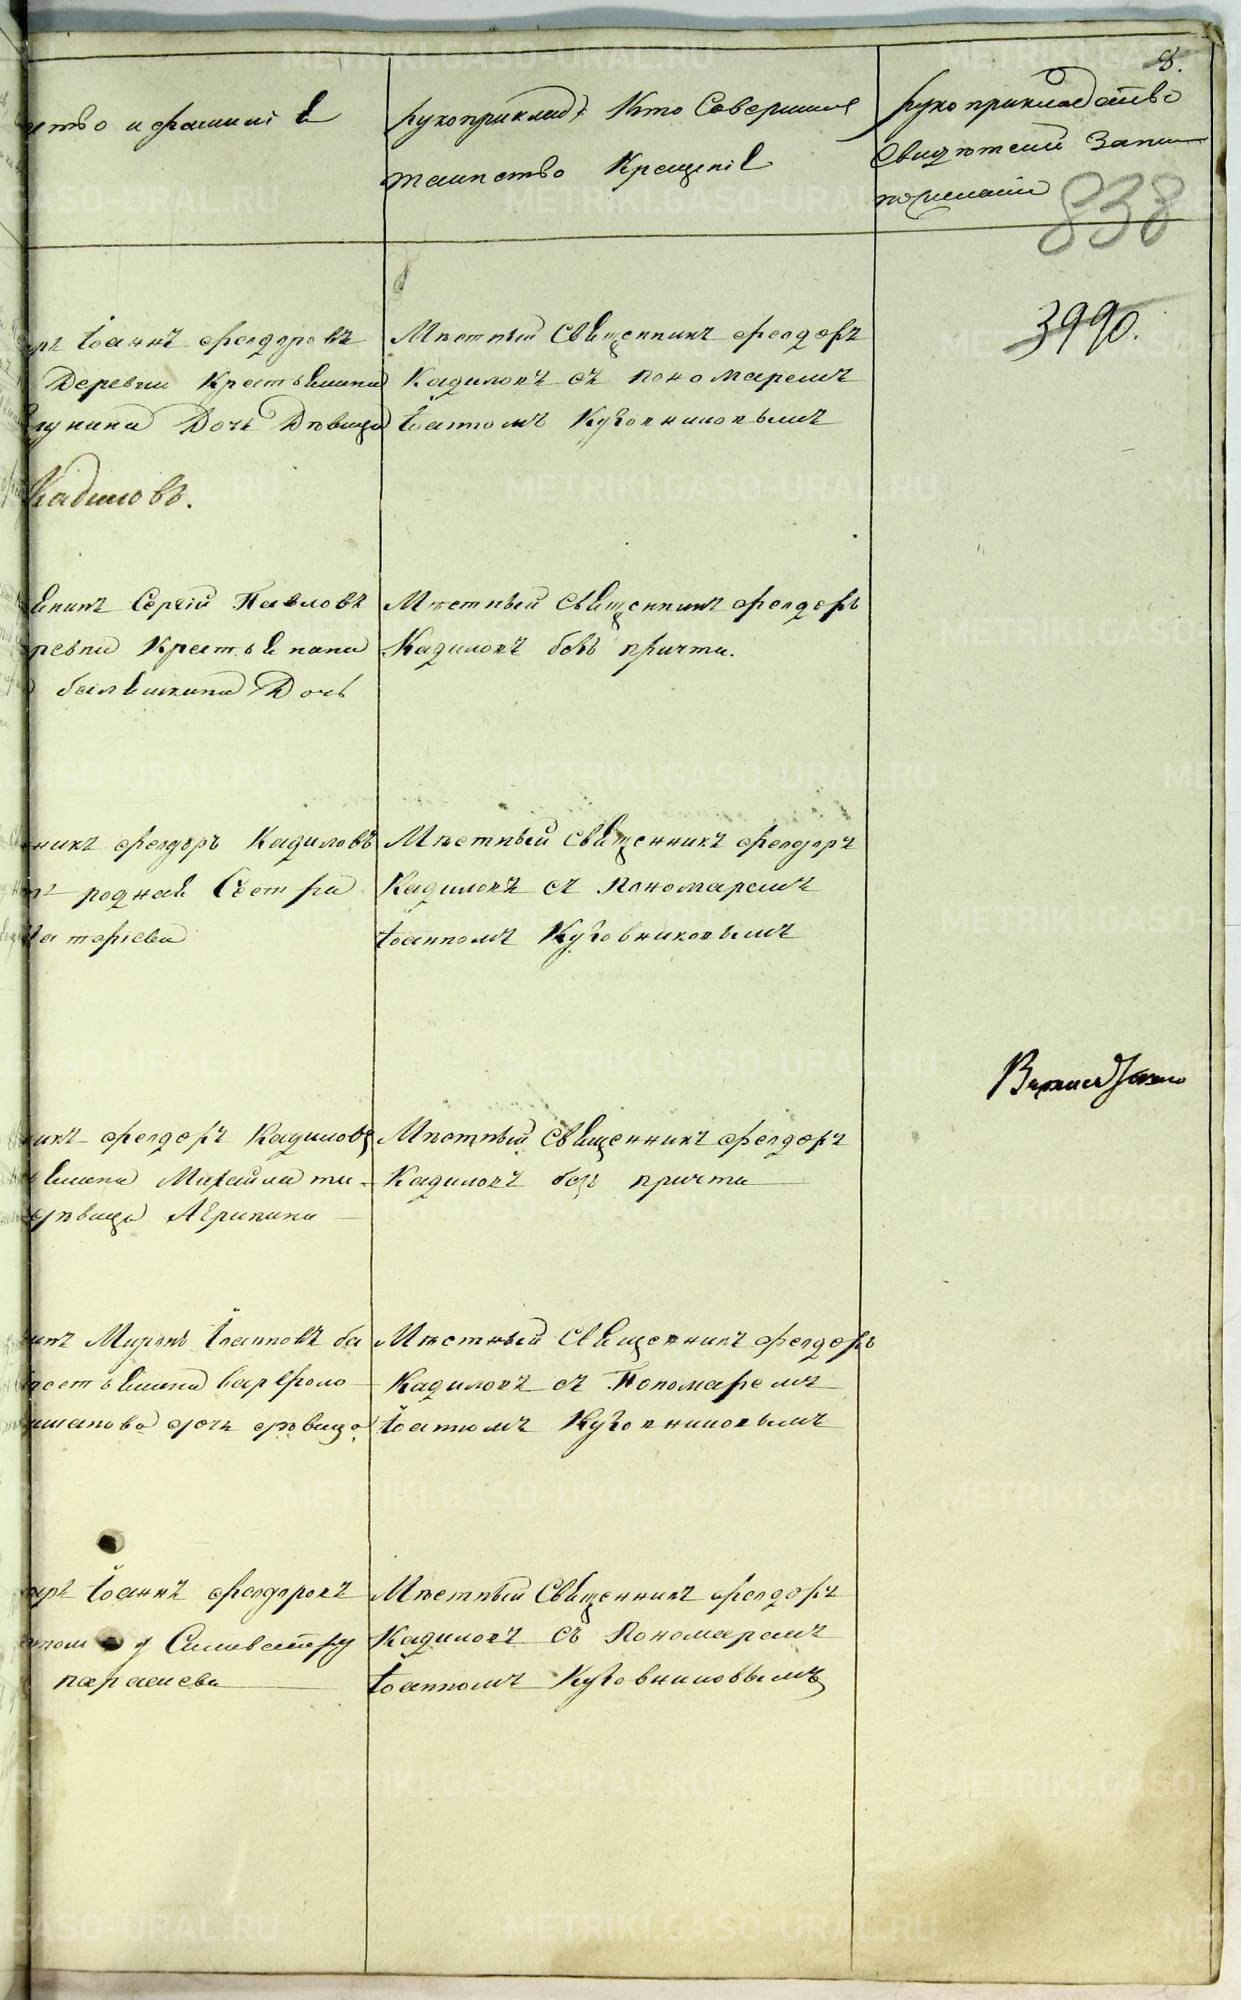 8.
838
ство и фамилія
рукоприклад: Кто Совершил
таинство Крещенія
рукоприкладство
Свидѣтелей Запи
по желанію
3990.
арь Іоаннъ Феодоровъ
Деревни Крестьянина
Дочь Дѣвица
Кадиловъ.
Мѣстный Священникъ Феодоръ
Кадиловъ съ пономаремъ
Іоанномъ Кузовниковымъ
янинъ Сергій Павловъ
ревни Крестьянина
Дочь
Мѣстный Священникъ Феодоръ
Кадиловъ безъ причта.
никъ Феодоръ Кадиловъ
родная Сестра
Мѣстный Священникъ Феодоръ
Кадиловъ съ Пономаремъ
Іоанномъ Кузовниковымъ
никъ Феодоръ Кадиловъ
ьянина Михаила ти
дѣвица Агрипина
Мѣстный Священникъ Феодоръ
Кадиловъ безъ причта
инъ Миронъ Іоанновъ ба
рестьянина Варфоло
шанова дочь дѣвица
Мѣстный Священникъ Феодоръ
Кадиловъ съ Пономаремъ
Іоанномъ Кузовниковымъ
арь Іоаннъ Феодоровъ
Силивестру
Мѣстный Священникъ Феодоръ
Кадиловъ съ Пономаремъ
Іоанномъ Кузовниковымъ
METRIKI.GASO-URAL.RU